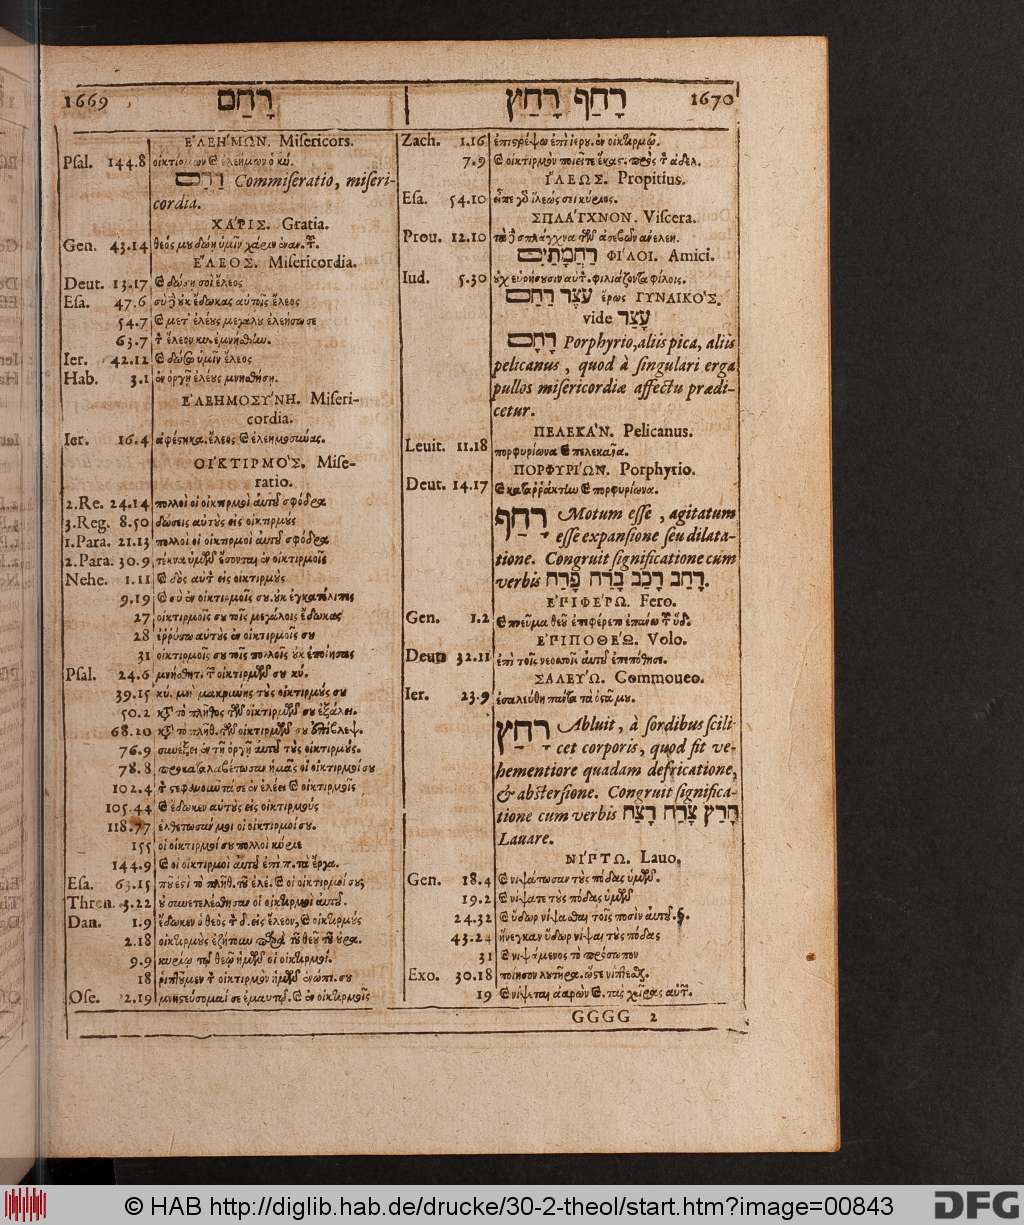 1669 רָחַם
ἘΛΕΉΜΩΝ. Misericors.
Psal. 144.8 οἰκτίρμων καὶ ἐλεήμων ὁ κύ.
רַחַם Commiseratio, miseri-
cordia.
ΧΆΡΙΣ. Gratia.
Gen. 43.14 θεός μου δώη ὑμῖν χάριν
ἜΛΕΟΣ. Misericordia.
Deut. 13.17 καὶ δώσει σοι ἔλεος
Esa. 47.6 σὺ οὐκ ἔδωκας αὐτοῖς ἔλεος
54.7 καὶ μετ' ἐλέους μεγάλου ἐλεήσω σε
63.7 ἔλεον κυ. ἐμνήσθην.
Ier. 42.12 καὶ δώσω ὑμῖν ἔλεος
Hab. 3.1 ἐν ὀργῇ ἐλέους μνησθήσῃ.
ἘΛΕΗΜΟΣΎΝΗ. Miseri-
cordia.
Ier. 16.4 ἔλεος καὶ ἐλεημοσύνας.
ΟἸΚΤΙΡΜΌΣ. Mise-
ratio.
2.Re. 24.14 πολλοὶ οἱ οἰκτιρμοὶ αὐτοῦ σφόδρα
3.Reg. 8.50 δώσεις αὐτοὺς εἰς οἰκτιρμοὺς
1.Para. 21.13 πολλοὶ οἱ οἰκτιρμοὶ αὐτοῦ σφόδρα
2.Para. 30.9 τέκνα ὑμῶν ἔσονται ἐν οἰκτιρμοῖς
Nehe. 1.11 καὶ δὸς αὐτὸν εἰς οἰκτιρμοὺς
9.19 καὶ σὺ ἐν οἰκτιρμοῖς σου οὐκ ἐγκατέλιπες
27 οἰκτιρμοῖς σου τοῖς μεγάλοις ἔδωκας
28 ἐρρύσω αὐτοὺς ἐν οἰκτιρμοῖς σου
31 οἰκτιρμοῖς σου τοῖς πολλοῖς οὐκ ἐποίησας
Psal. 24.6 μνήσθητι τῶν οἰκτιρμῶν σου κύ.
39.15 κύ. μὴ μακρύνῃς τοὺς οἰκτιρμούς σου
50.2 κατὰ τὸ πλῆθος τῶν οἰκτιρμῶν σου ἐξάλει.
68.20 κατὰ τὸ πλῆθ. τῶν οἰκτιρμῶν σου ἐπίβλεψ.
76.9 συνέξει ἐν τῇ ὀργῇ αὐτοῦ τοὺς οἰκτιρμούς.
78.8 προκαταλαβέτωσαν ἡμᾶς οἱ οἰκτιρμοί σου
102.4 τὸν στεφανοῦντά σε ἐν ἐλέει καὶ οἰκτιρμοῖς
105.44 καὶ ἔδωκεν αὐτοὺς εἰς οἰκτιρμούς
118.77 ἐλθέτωσάν μοι οἱ οἰκτιρμοί σου.
155 οἱ οἰκτιρμοί σου πολλοὶ κύριε
144.9 καὶ οἱ οἰκτιρμοὶ αὐτοῦ ἐπὶ π. τὰ ἔργα.
Esa. 63.15 ποῦ ἐστὶ τὸ πλῆθ. τοῦ ἐλέ. καὶ οἱ οἰκτιρμοί σου;
Thren. 3.22 οὐ συνετελέσθησαν οἱ οἰκτιρμοὶ αὐτοῦ.
Dan. 1.9 ἔδωκεν ὁ θεὸς τὸν δ. εἰς ἔλεον, καὶ οἰκτιρμούς
2.18 οἰκτιρμοὺς ἐζήτουν παρὰ τοῦ θεοῦ τοῦ οὐρα.
9.9 κυρίῳ τῷ θεῷ ἡμῶν οἱ οἰκτιρμοί.
18 ῥιπτοῦμεν τὸν οἰκτιρμὸν ἡμῶν ἐνώπι. σου
Ose. 2.19 μνηστεύσομαί σε ἐμαυτῷ. καὶ ἐν οἰκτιρμοῖς
רָחַף רָחַץ 1670
Zach. 1.16 ἐπιστρέψω ἐπὶ ἱερου. ἐν οἰκτιρμῷ.
7.9 καὶ οἰκτιρμὸν ποιεῖτε ἕκας. πρὸς τὸν ἀδελ.
ἽΛΕΩΣ. Propitius.
Esa. 54.10 εἶπε γὰρ ἵλεώς σοι κύριος.
ΣΠΛΆΓΧΝΟΝ. Viscera.
Prou. 12.10 τὰ δὲ σπλάγχνα τῶν ἀσεβῶν ἀνελεή.
רַחֲמָתַיִם ΦΊΛΟΙ. Amici.
Iud. 5.30 φιλιάζοντα φίλοις.
עֹצֶר רַחַם ἔρως ΓΥΝΑΙΚΌΣ.
vide עָצַר
רָחָם Porphyrio, aliis pica, aliis
pelicanus, quod à singulari erga
pullos misericordiæ affectu prædi-
cetur.
ΠΕΛΕΚΆΝ. Pelicanus.
Leuit. 11.18 πορφυρίωνα καὶ πελεκᾶνα.
ΠΟΡΦΥΡΊΩΝ. Porphyrio.
Deut. 14.17 καὶ καταρράκτην καὶ πορφυρίωνα.
רָחַף Motum esse, agitatum
esse expansione seu dilata-
tione. Congruit significatione cum
verbis רָחַב רָכַב בָּרַח פָּרַח.
ἘΠΙΦΈΡΩ. Fero.
Gen. 1.2 καὶ πνεῦμα θεοῦ ἐπεφέρετο ἐπάνω τοῦ ὕδ.
ἘΠΙΠΟΘΈΩ. Volo.
Deut 32.11 ἐπὶ τοῖς νεοσσοῖς αὐτοῦ ἐπεπόθησε.
ΣΑΛΕΎΩ. Commoueo.
Ier. 23.9 ἐσαλεύθη πάντα τὰ ὀστᾶ μου.
רָחַץ Abluit, à sordibus scili-
cet corporis, quod fit ve-
hementiore quadam defricatione,
& abstersione. Congruit significa-
tione cum verbis חָרַץ צָרַח רָצַח
Lauare.
ΝΊΠΤΩ. Lauo.
Gen. 18.4 καὶ νιψάτωσαν τοὺς πόδας ὑμῶν.
19.2 καὶ νίψατε τοὺς πόδας ὑμῶν
24.32 καὶ ὕδωρ νίψασθαι τοῖς ποσὶν αὐτοῦ.
43.24 ἤνεγκαν ὕδωρ νίψαι τοὺς πόδας
31 καὶ νιψάμενος τὸ πρόσωπον
Exo. 30.18 ποίησον λουτῆρα. ὥστε νίπτεσθ.
19 καὶ νίψεται ἀαρὼν καὶ. τὰς χεῖρας αὐτῶν.
GGGG 2
© HAB http://diglib.hab.de/drucke/30-2-theol/start.htm?image=00843
DFG